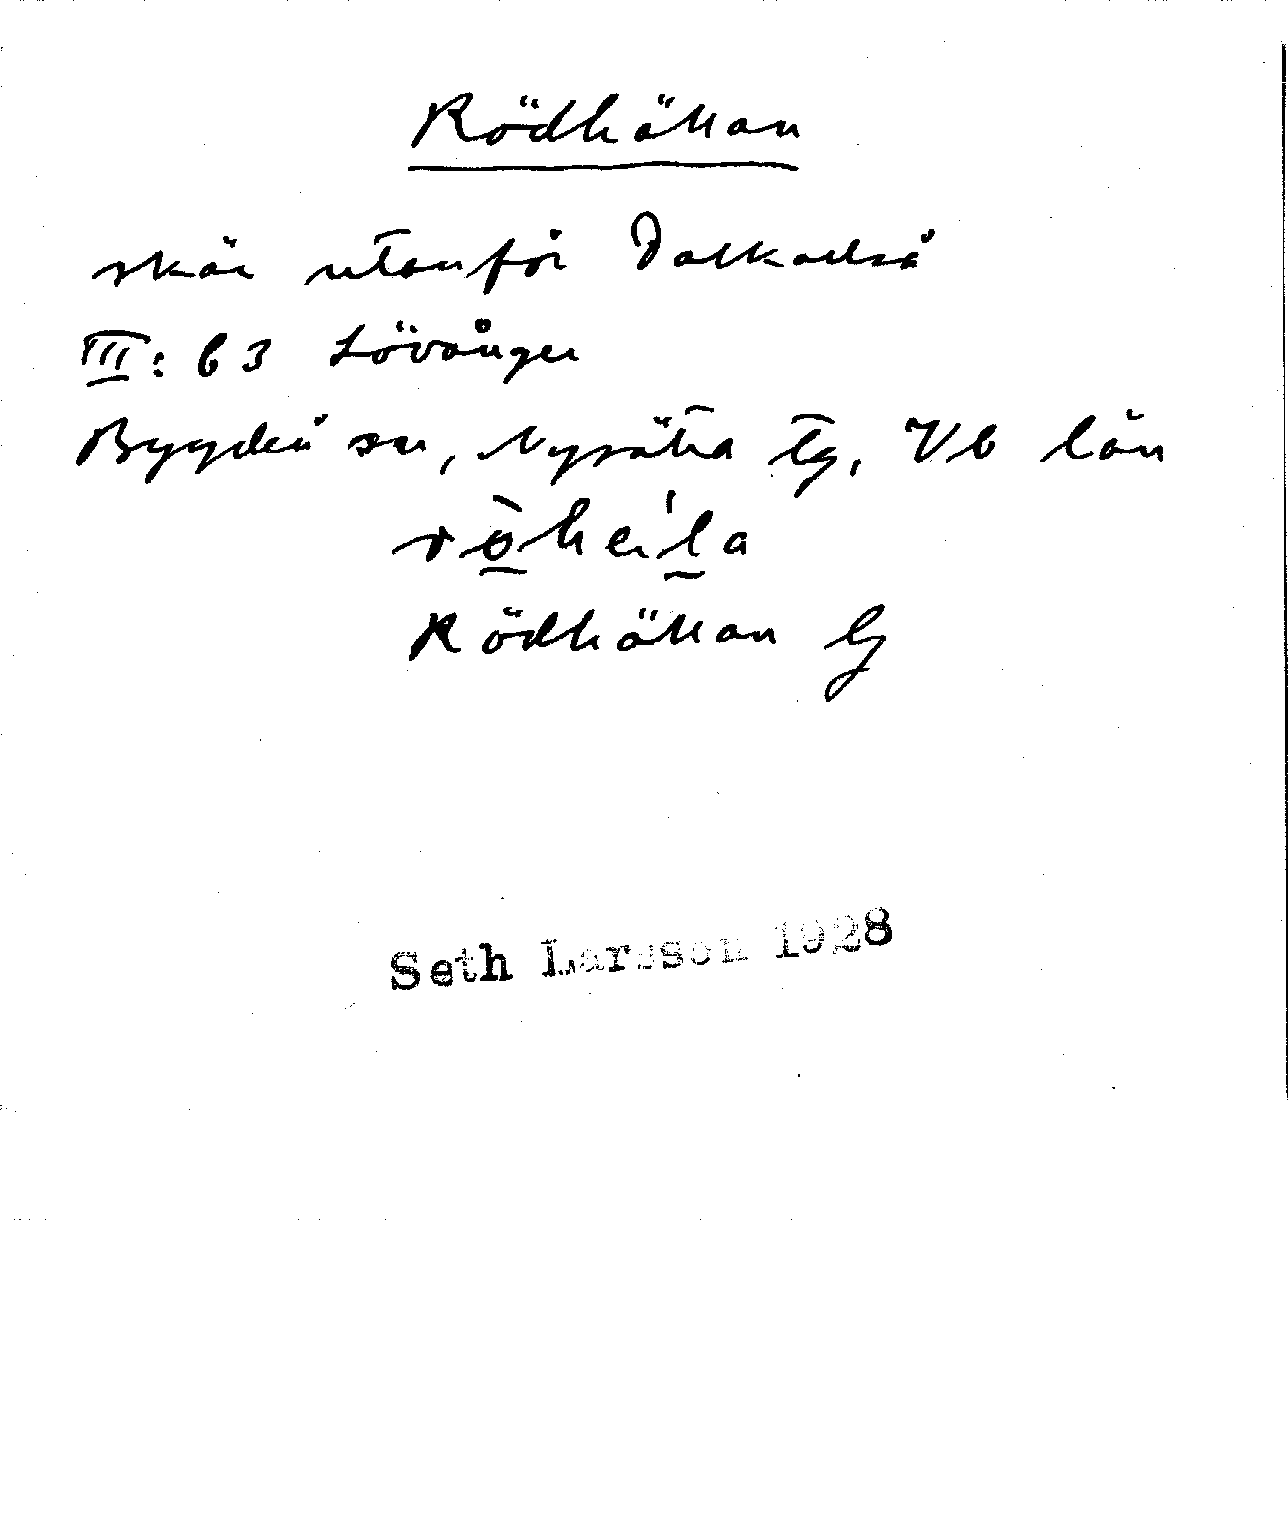 Rödhällan
skär utanför Dalkarlså
III: b3 Lövånger
Bygdeå sn, Nysätra tg, Vb län
Rödhällan
Seth Larsson 1928